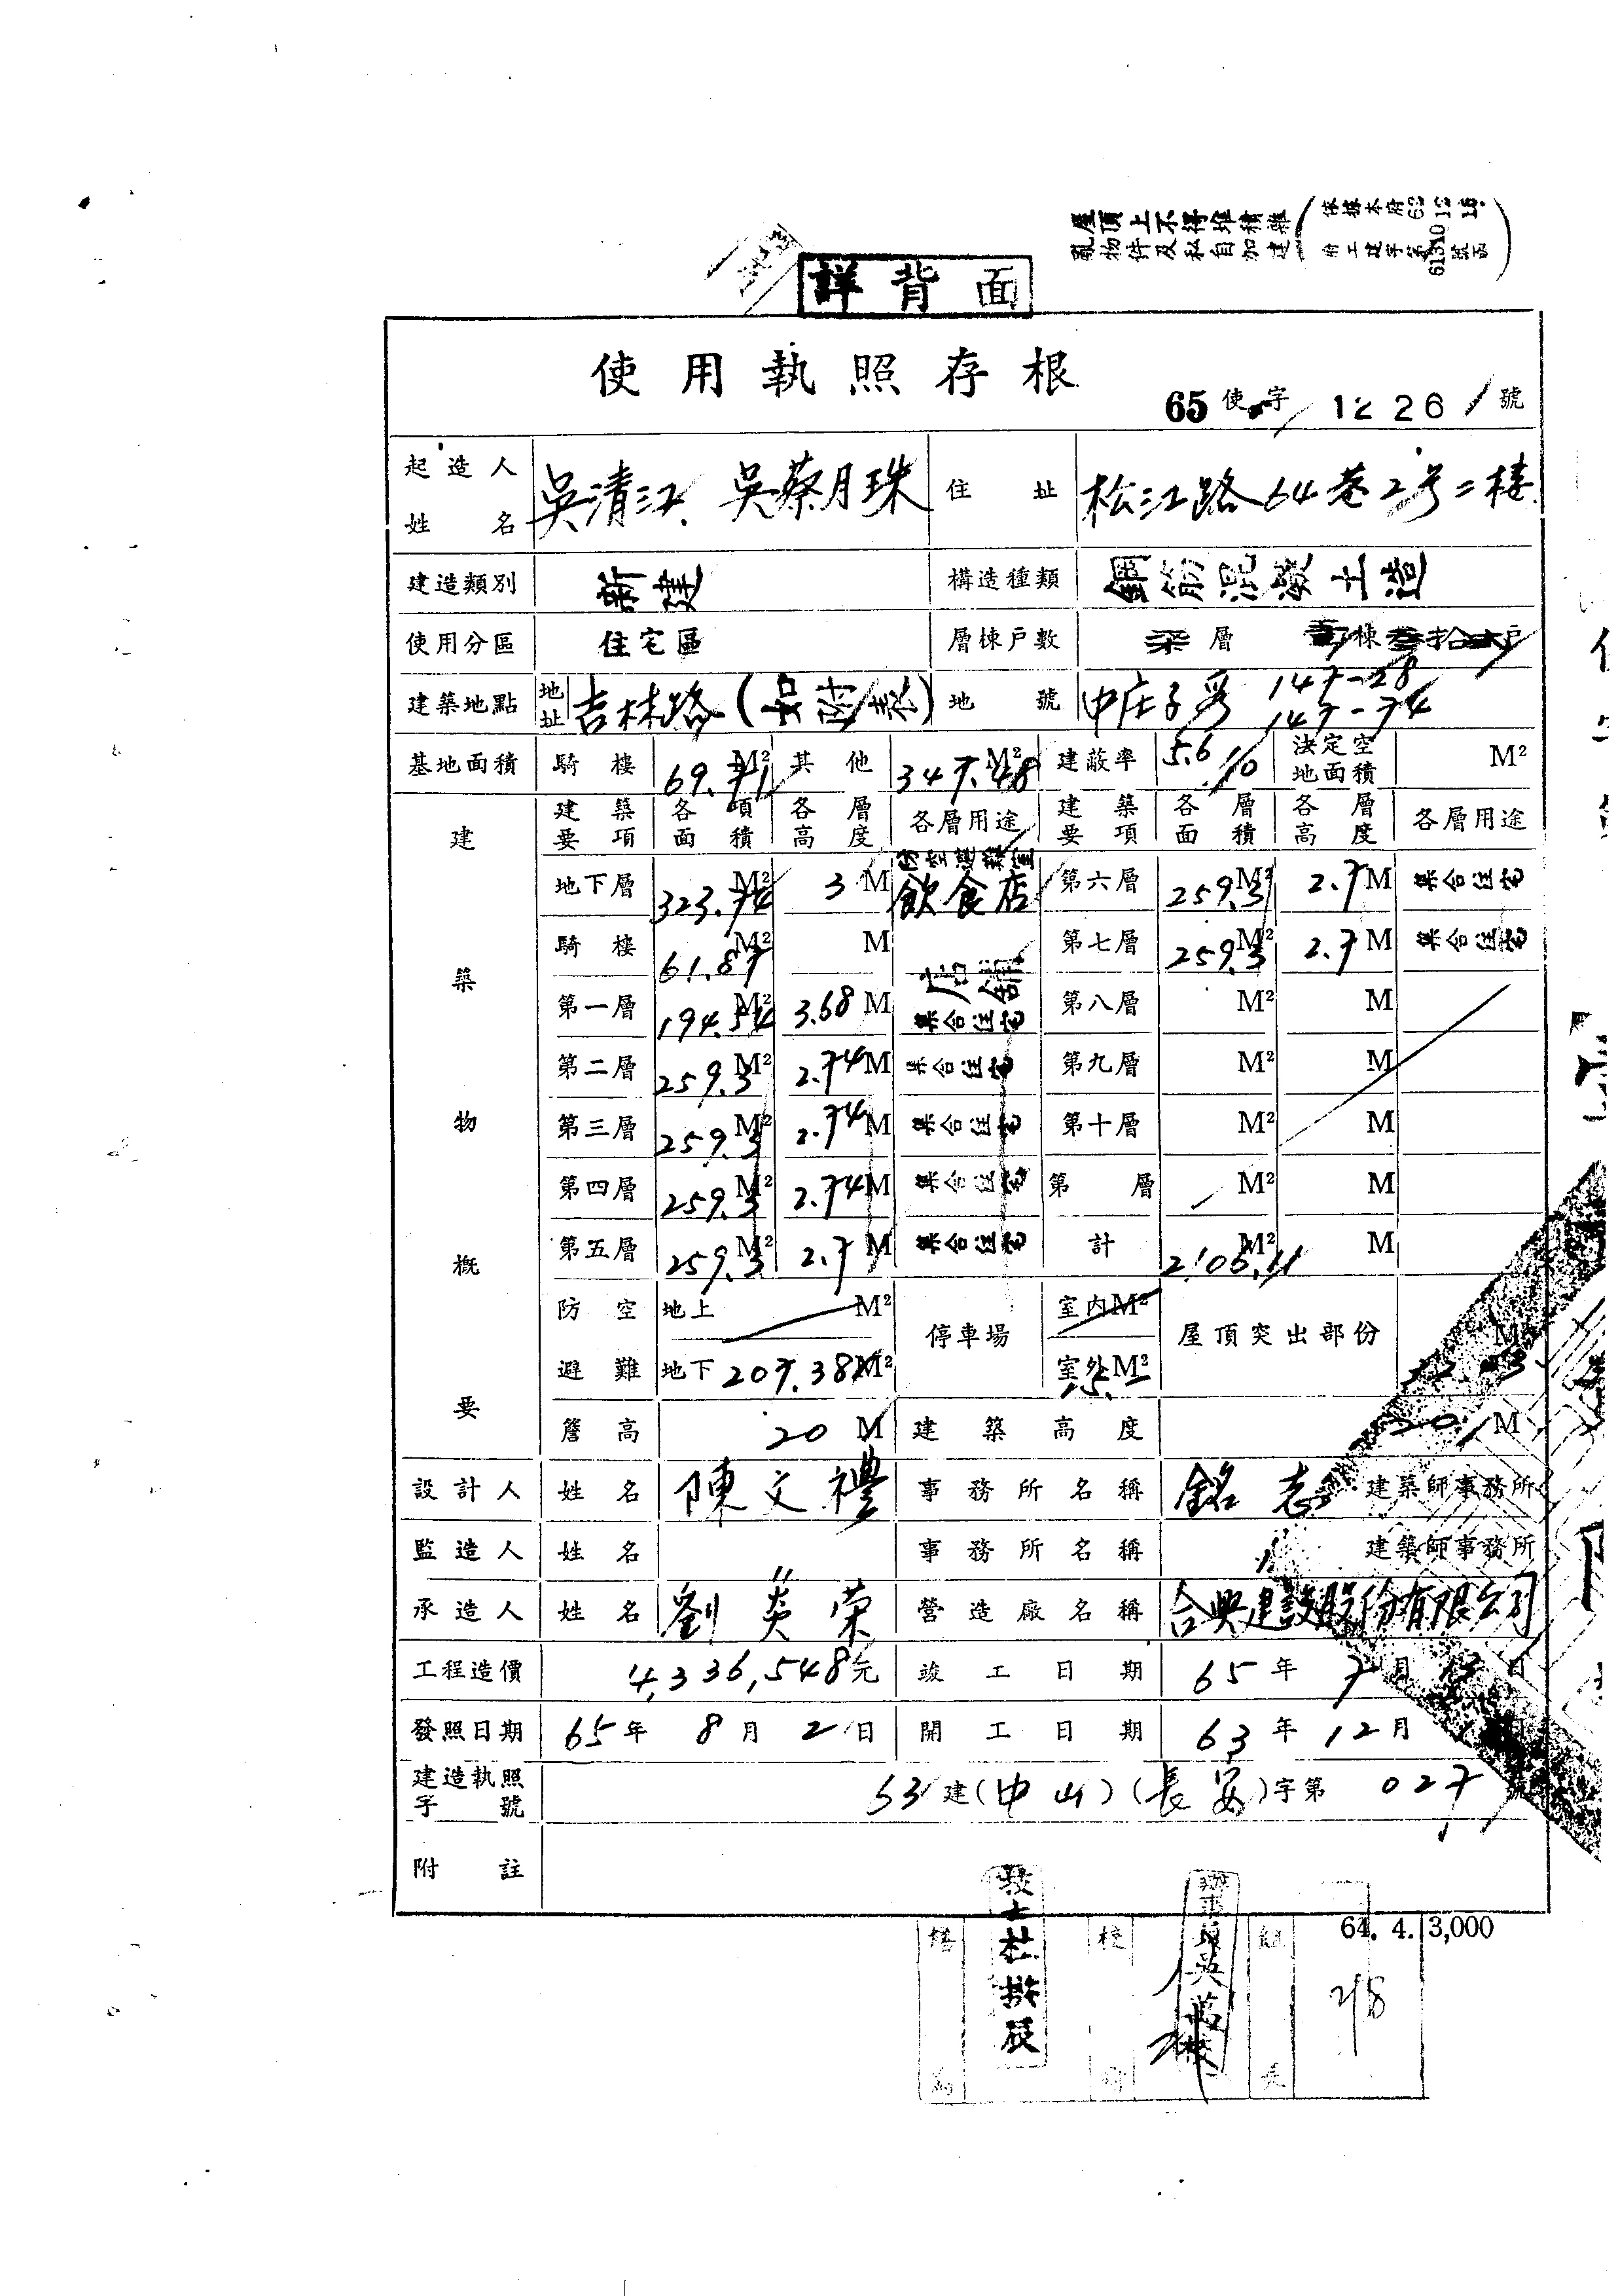 屋頂上不得堆積雜
亂物件及私自加建
詳背面
使用執照存根
65使字 1226號
起造人姓名 吳清江 吳蔡月珠 住址 松江路64巷2号二樓
建造類別 新建 構造種類 鋼筋混凝土造
使用分區 住宅區 層棟戶數 柒層 棟 戶
建築地點 地址 吉林路 地號 中庄子 147-28
147-74
基地面積 騎樓 69.71 M² 其他 347.48 M² 建蔽率 5.6/10 決定空地面積 M²
建築物概要
建築要項 各項面積 各層高度 各層用途 建築要項 各層面積 各層高度 各層用途
地下層 323.74 M² 3 M 防空避難室 飲食店 第六層 259.3 M² 2.7 M 集合住宅
騎樓 61.87 M² M 第七層 259.3 M² 2.7 M 集合住宅
第一層 194.54 M² 3.68 M 店舖 集合住宅 第八層 M² M
第二層 259.3 M² 2.74 M 集合住宅 第九層 M² M
第三層 259.3 M² 2.74 M 集合住宅 第十層 M² M
第四層 259.3 M² 2.74 M 集合住宅 第 層 M² M
第五層 259.3 M² 2.7 M 集合住宅 計 M² M
防空避難 地上 M² 停車場 室內 M² 屋頂突出部份
地下 207.38 M² 室外 M²
簷高 20 M 建築高度 20 M
設計人 姓名 陳文禮 事務所名稱 銘志 建築師事務所
監造人 姓名 〃 事務所名稱 〃 建築師事務所
承造人 姓名 劉炎榮 營造廠名稱 合興建設股份有限公司
工程造價 4,336,548元 竣工日期 65年7月13日
發照日期 65年8月2日 開工日期 63年12月
建造執照字號 63建(中山)(長安)字第027號
附註
64. 4. 3,000
2/8